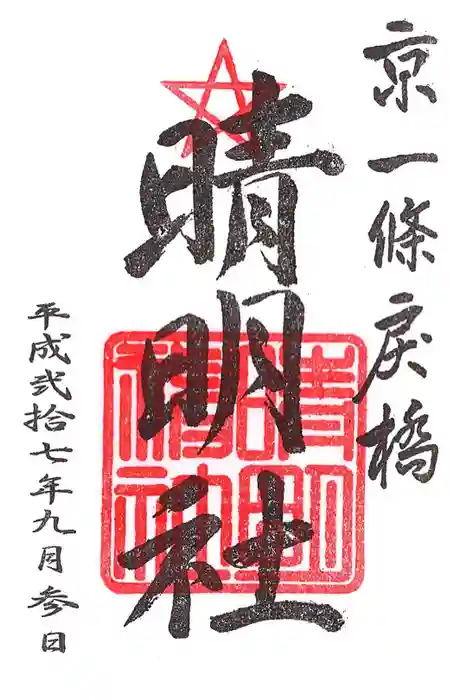 京一條戻橋
晴明社
平成弐拾七年九月参日